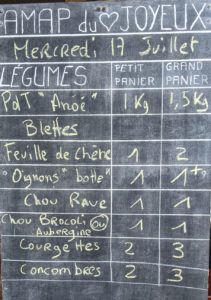 AMAP du ♡ JOYEUX
Mercredi 17 Juillet
LÉGUMES PETIT PANIER GRAND PANIER
PdT "Anoé" 1 Kg 1,5 Kg
Blettes
Feuille de Chêne 1 2
"Oignons" botte" 1 1+
Chou Rave 1 1
Chou Brocoli ou Aubergine 1 1
Courgettes 2 3
Concombres 2 3